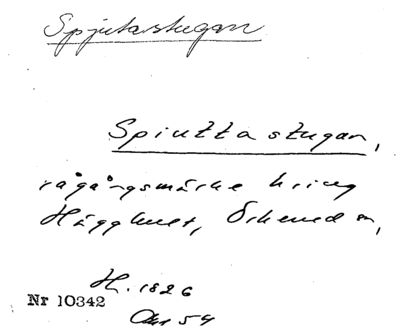 Spjutastugan
Spiuttastugan,
rågångsmärke kring
Hägghult, Örkened sn,
H. 1826
Nr 10342
Akt 54